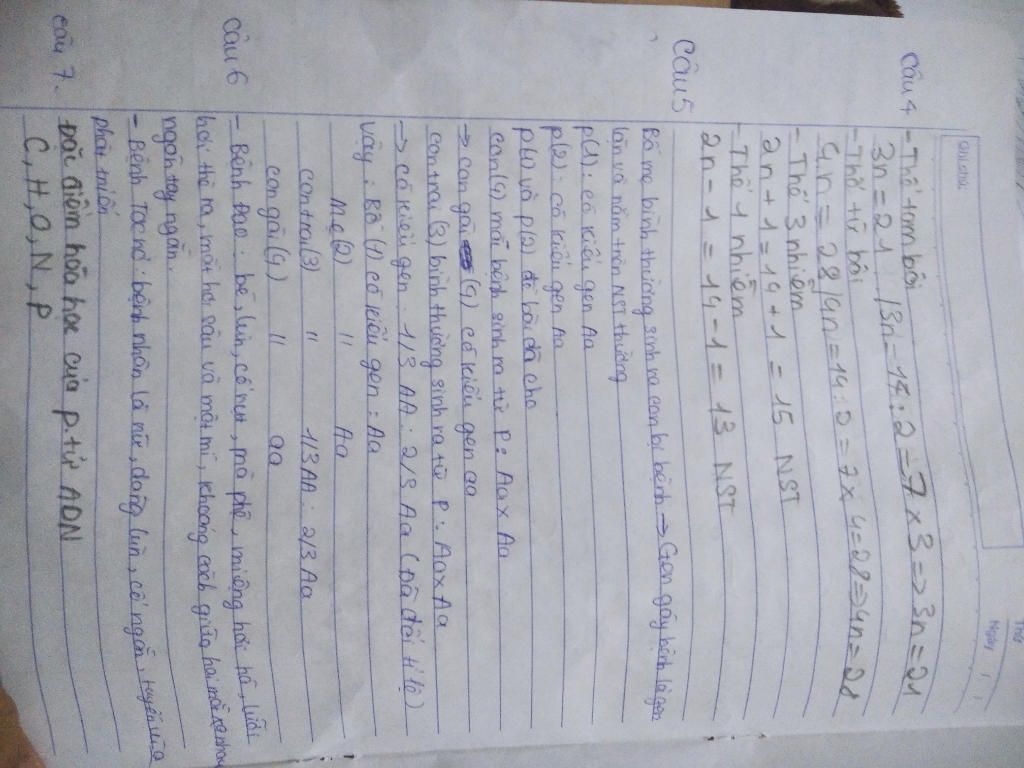 Ghi chú:
Thứ
Ngày
Câu 4 - Thể tam bội
3n = 21 /3n = 14 : 2 = 7 x 3 => 3n = 21
- Thể tứ bội
4n = 28 /4n = 14 : 2 = 7 x 4 = 28 => 4n = 28
- Thể 3 nhiễm
2n + 1 = 14 + 1 = 15 NST
- Thể 1 nhiễm
2n - 1 = 14 - 1 = 13 NST
Câu 5 Bố mẹ bình thường sinh ra con bị bệnh → Gen gây bệnh là gen
lặn và nằm trên NST thường
p(1): có kiểu gen Aa
p(2): có kiểu gen Aa
p(1) và p(2) đề bài đã cho
con(4) mắc bệnh sinh ra từ P: Aa x Aa
→ con gái (4) có kiểu gen aa
con trai (3) bình thường sinh ra từ P: Aa x Aa
→ có kiểu gen 1/3 AA : 2/3 Aa (Đã đổi tỉ lệ)
Vậy: Bố (1) có kiểu gen: Aa
Mẹ(2) " Aa
con trai(3) " 1/3AA : 2/3Aa
con gái(4) " aa
Câu 6 - Bệnh Đao: bé, lùn, cổ rụt, má phệ, miệng hơi há, lưỡi
hơi thè ra, mắt hơi sâu và một mí, khoảng cách giữa hai mắt
ngón tay ngắn.
- Bệnh Tơcnơ: bệnh nhân là nữ, dáng lùn, cổ ngắn, tuyến vú
phát triển
Câu 7. Đặc điểm hóa học của p.tử ADN
C, H, O, N, P